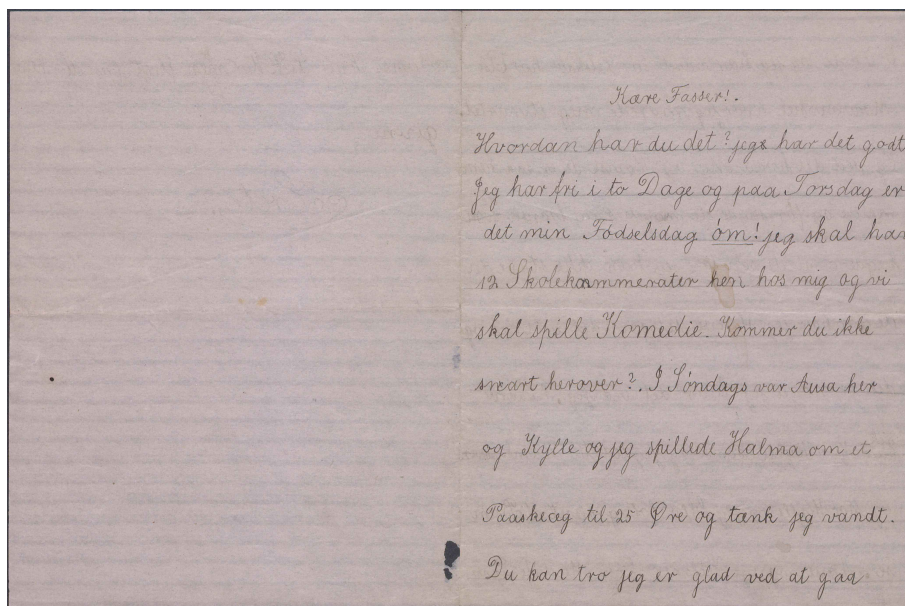 Kære Fasser!.
Hvordan har du det? jeg har det godt
Jeg har fri i to Dage og paa Torsdag er
det min Fødselsdag óm! jeg skal har
12 Skolekammerater hen hos mig og vi
skal spille Komedie. Kommer du ikke
snart herover?. I Søndags var Ausa her
og Kylle og jeg spillede Halma om et
Paaskeæg til 25 Øre og tænk jeg vandt.
Du kan tro jeg er glad ved at gaa